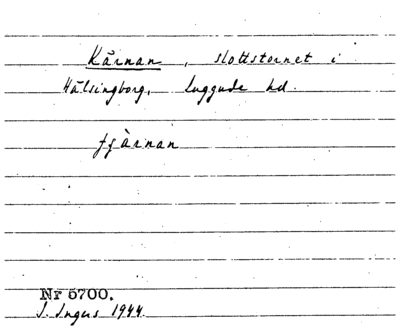 Kärnan, slottstornet i
Hälsingborg, Luggude hd.
fjä̀rnan
Nr 5700.
I. Ingers 1944.